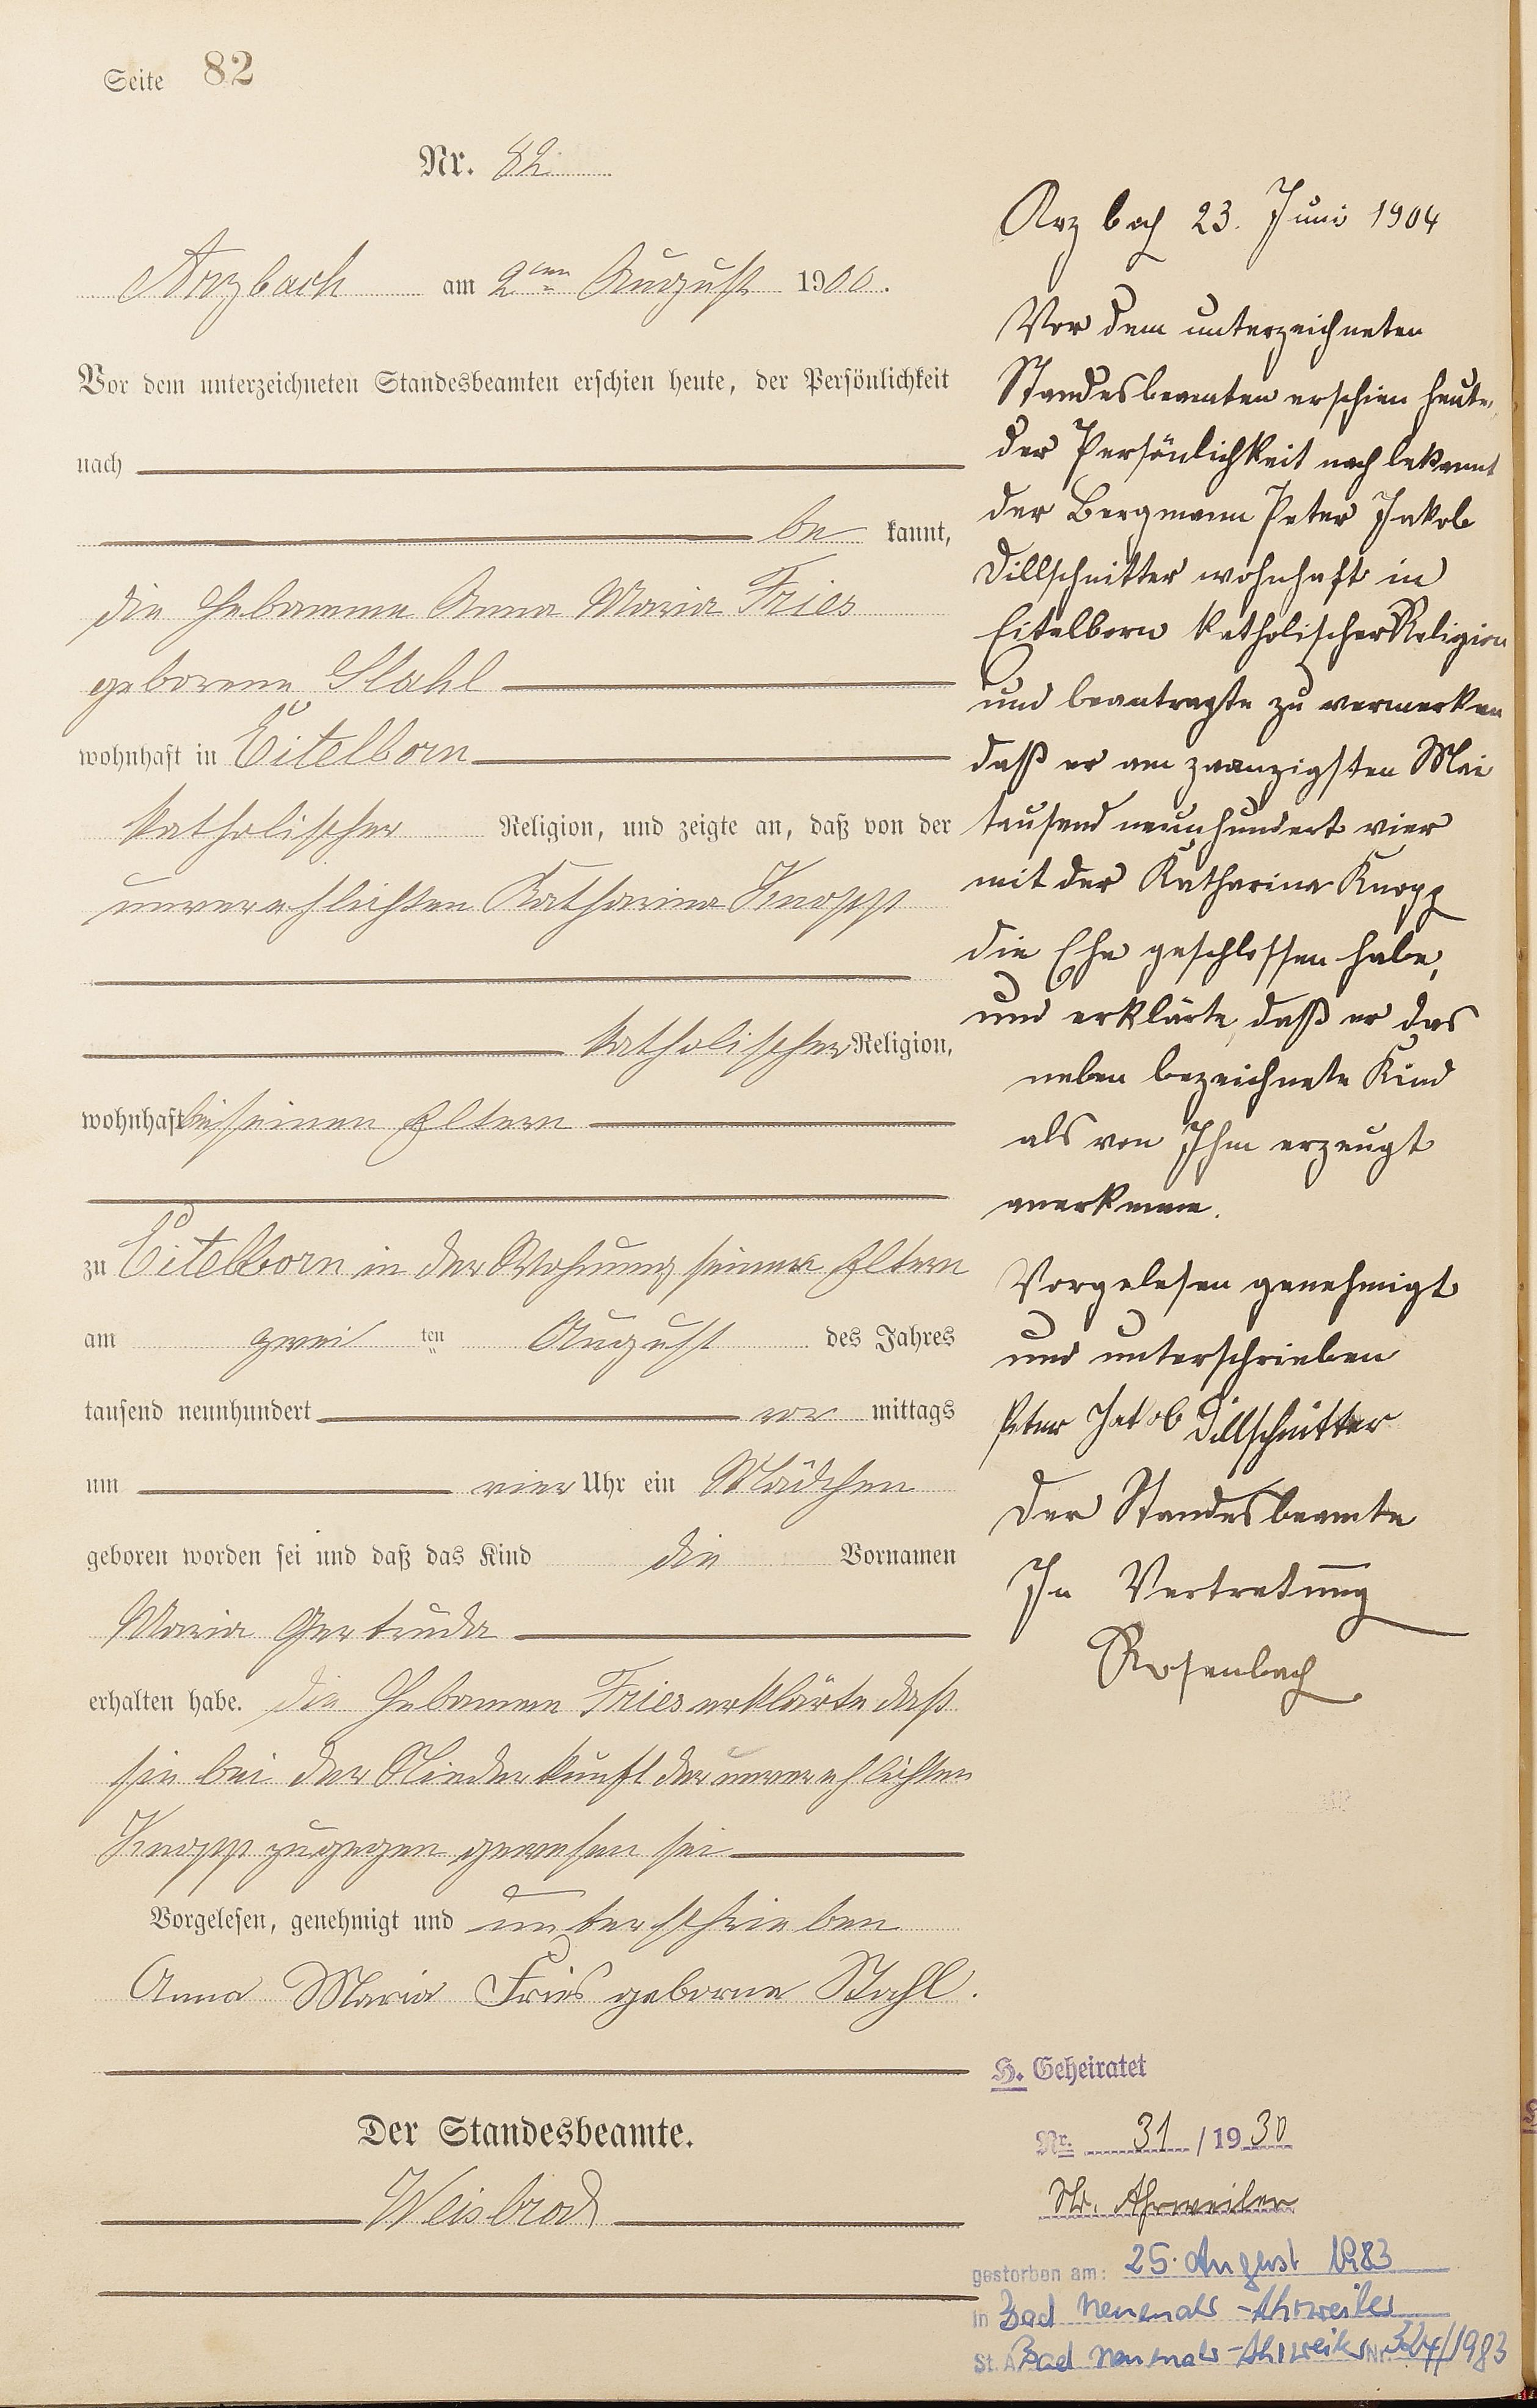 Seite 82
Nr. 82
Arzbach am 2ten August 1900.
Vor dem unterzeichneten Standesbeamten erschien heute, der Persönlichkeit
nach
be kannt,
die Hebamme Anna Maria Fries
geborene Stahl
wohnhaft in Eitelborn
katholischer Religion, und zeigte an, daß von der
unverehlichten Katharina Knopp
katholischer Religion,
wohnhaft bei seinen Eltern
zu Eitelborn in der Wohnung seiner Eltern
am zwei ten August des Jahres
tausend neunhundert vor mittags
um vier Uhr ein Mädchen
geboren worden sei und daß das Kind die Vornamen
Maria Gertruda
erhalten habe. Die Hebamme Fries erklärte daß
sie bei der Niederkunft der unverehlichten
Knopp zugegen gewesen sei
Vorgelesen, genehmigt und unterschrieben
Anna Maria Fries geborne Stahl.
Der Standesbeamte.
Weisbrod
Arzbach 23. Juni 1904
Vor dem unterzeichneten
Standesbeamten erschien heute,
der Persönlichkeit nach bekannt
der Bergmann Peter Jakob
Dillschnitter wohnhaft in
Eitelborn katholischer Religion
und beantragte zu vermerken
daß er am zwanzigsten Mai
tausend neunhundert vier
mit der Katharina Knopp
die Ehe geschlossen habe,
und erklärte, daß er das
neben bezeichnete Kind
als von Ihm erzeugt
anerkenne.
Vorgelesen genehmigt
und unterschrieben
Peter Jakob Dillschnitter
Der Standesbeamte
In Vertretung
Rosenbach
H. Geheiratet
Nr. 31 / 1930
St. Ahrweiler
gestorben am: 25. August 1983
in Bad Neuenahr-Ahrweiler
St. A. Bad Neuenahr-Ahrweiler Nr. 324/1983